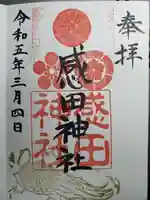 奉拝
感田神社
感田
神社
令和五年三月四日